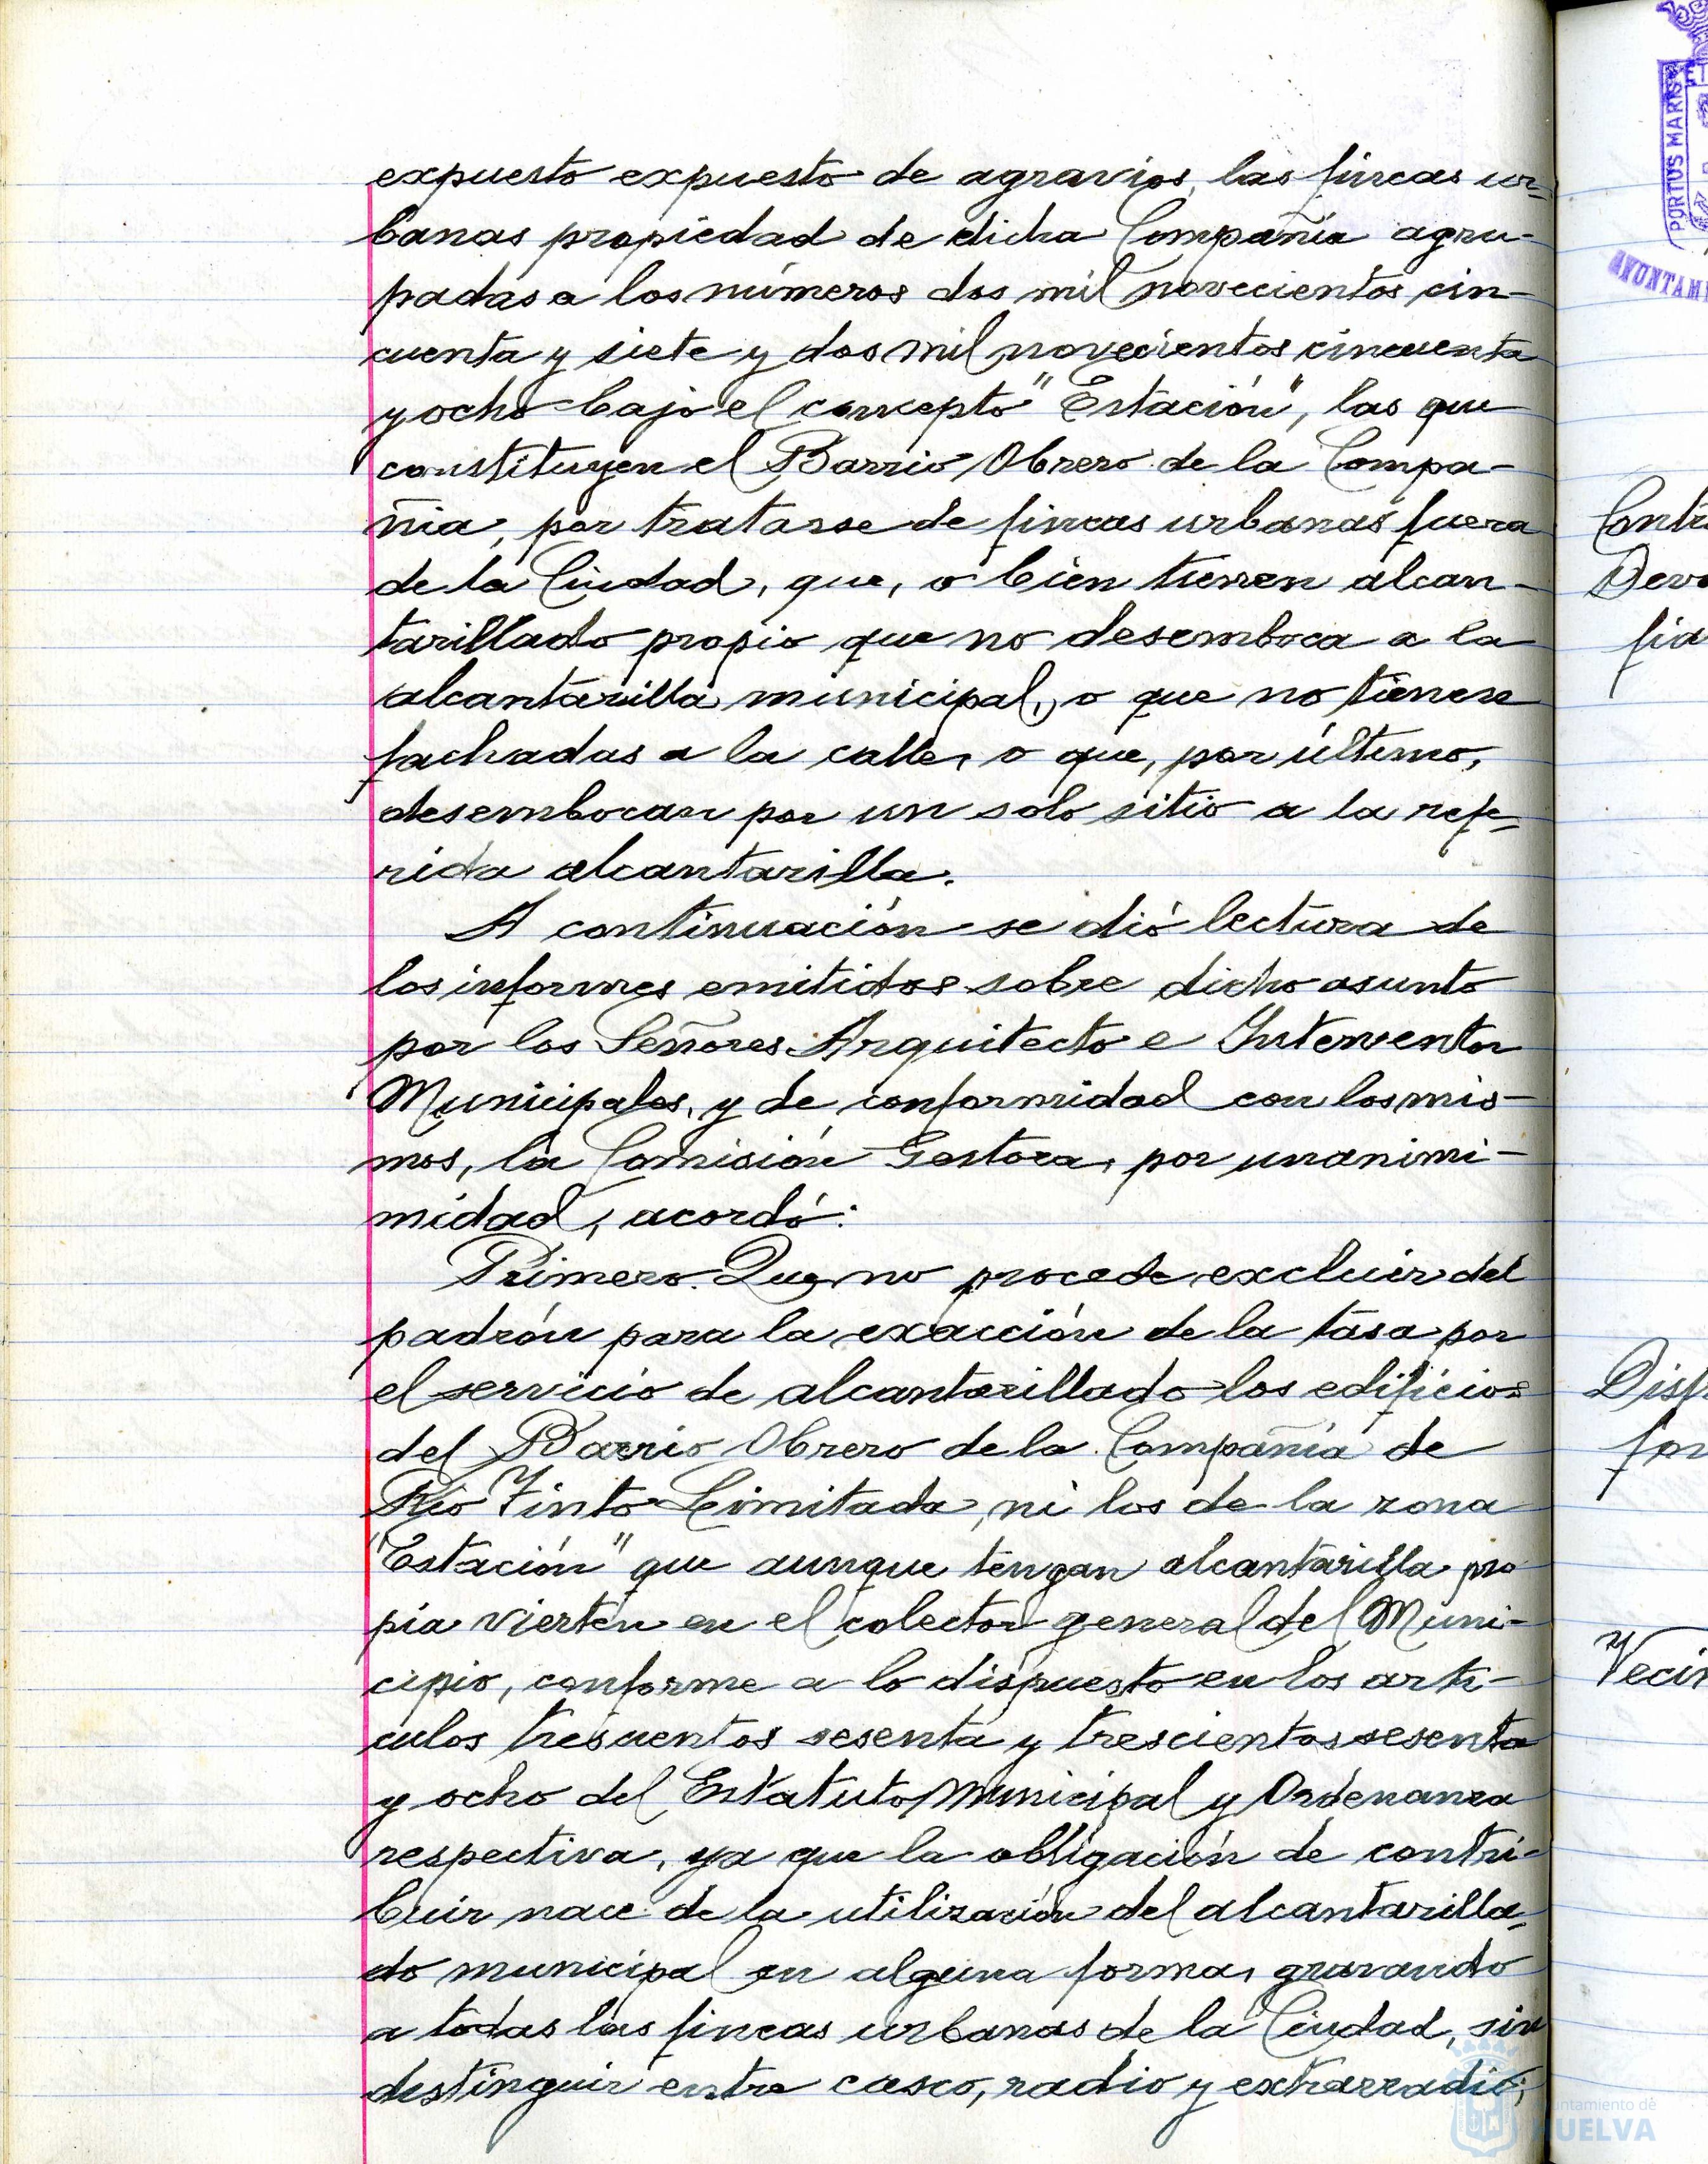 expuesto expuesto de agravios, las fincas ur-
banas propiedad de dicha Compañía agru-
padas a los números dos mil novecientos cin-
cuenta y siete y dos mil novecientos cincuenta
y ocho bajo el concepto "Estación", las que
constituyen el Barrio Obrero de la Compa-
ñia, por tratarse de fincas urbanas fuera
de la Ciudad, que, o bien tienen alcan-
tarillado propio que no desemboca a la
alcantarilla municipal, o que no tienen
fachadas a la calle, o que, por último,
desembocan por un solo sitio a la refe-
rida alcantarilla.
A continuación se dió lectura de
los informes emitidos sobre dicho asunto
por los Señores Arquitecto e Interventor
Municipales, y de conformidad con los mis-
mos, la Comisión Gestora, por unanimi-
midad, acordó:
Primero. Que no procede excluir del
padrón para la exacción de la tasa por
el servicio de alcantarillado los edificios
del Barrio Obrero de la Compañía de
Río Tinto Limitada, ni los de la zona
"Estación" que aunque tengan alcantarilla pro
pia vierten en el colector general del Muni-
cipio, conforme a lo dispuesto en los artí-
culos trescientos sesenta y trescientos sesenta
y ocho del Estatuto Municipal y Ordenanza
respectiva, ya que la obligación de contri-
buir nace de la utilización del alcantarilla-
do municipal en alguna forma, gravando
a todas las fincas urbanas de la Ciudad, sin
destinguir entre casco, radio y extrarradio;
PORTUS MARIS
AYUNTAM
Contr
Devo
fia
Disp
for
Vecin
Ayuntamiento de
HUELVA